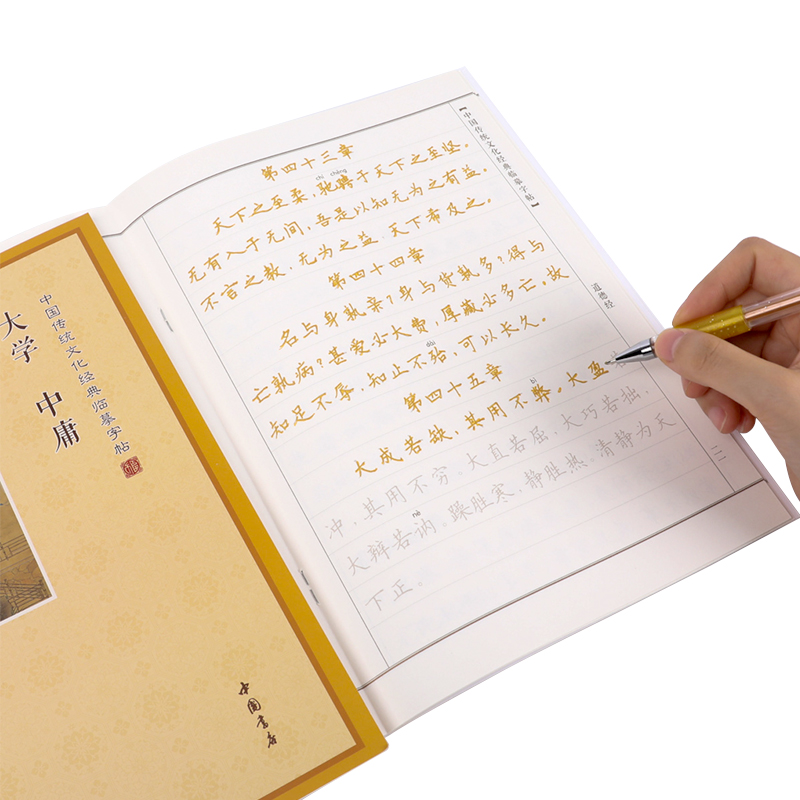 大学 中庸
中国传统文化经典临摹字帖
中国书店
【中国传统文化经典临摹字帖】
道德经
第四十三章
chí chěng
天下之至柔,驰聘于天下之至坚。
无有入于无间,吾是以知无为之有益。
不言之教,无为之益,天下希及之。
第四十四章
名与身孰亲?身与货孰多?得与
亡孰病?甚爱必大费,厚藏必多亡。故
dài
知足不辱,知止不殆,可以长久。
第四十五章
bì
大成若缺,其用不弊。大盈
冲,其用不穷。大直若屈,大巧若拙,
nè
大辩若讷。躁胜寒,静胜热。清静为天
下正。